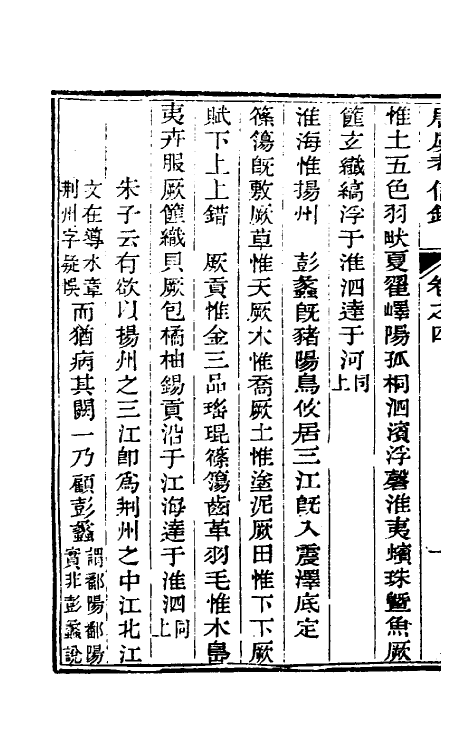 唐虞考信錄　卷之四　一
惟土五色羽畎夏翟嶧陽孤桐泗濱浮磬淮夷蠙珠曁魚厥
篚玄纖縞浮于淮泗達于河同上
淮海惟揚州　彭蠡旣豬陽鳥攸居三江旣入震澤底定
篠簜旣敷厥草惟夭厥木惟喬厥土惟塗泥厥田惟下下厥
賦下上上錯　厥貢惟金三品瑤琨篠簜齒革羽毛惟木島
夷卉服厥篚織貝厥包橘柚錫貢沿于江海達于淮泗同上
朱子云有欲以揚州之三江卽爲荆州之中江北江
文在導水章荆州字疑悞而猶病其闕一乃顧彭蠡謂鄱陽鄱陽實非彭蠡說